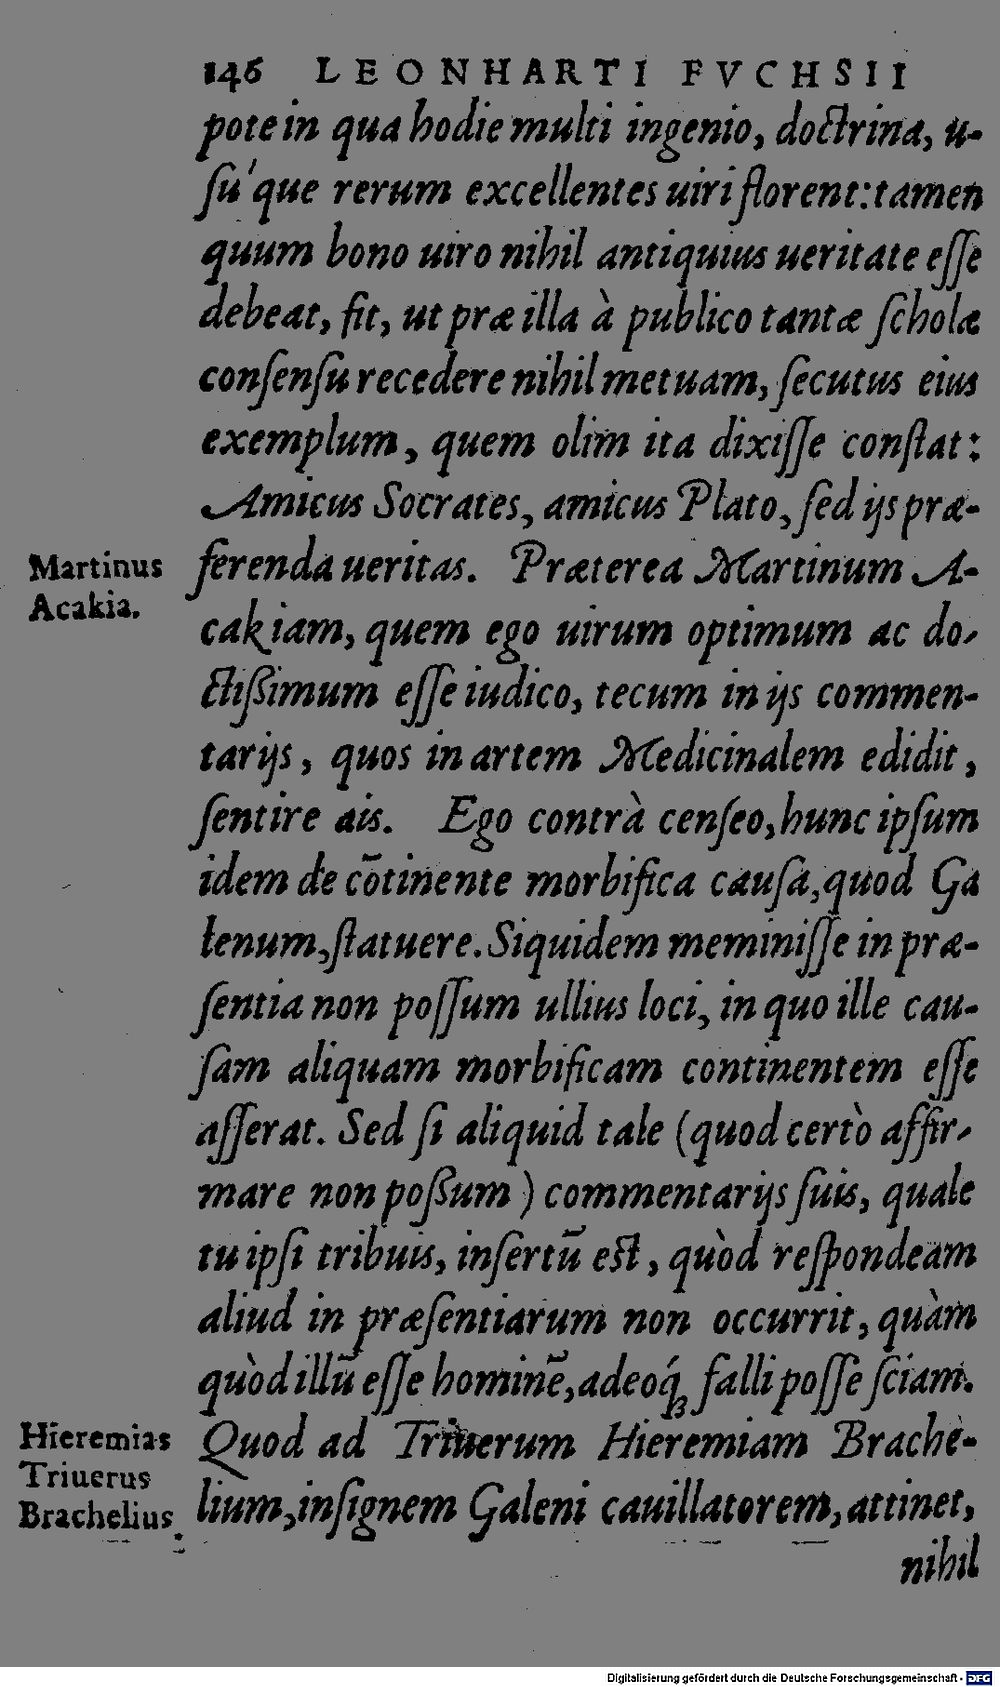 146 LEONHARTI FVCHSII
pote in qua hodie multi ingenio, doctrina, u-
ſu´que rerum excellentes uiri florent: tamen
quum bono uiro nihil antiquius ueritate eſſe
debeat, fit, ut præ illa à publico tantæ ſcholæ
conſenſu recedere nihil metuam, ſecutus eius
exemplum, quem olim ita dixiſſe conſtat:
Amicus Socrates, amicus Plato, ſed ijs præ-
Martinus
Acakia.
ferenda ueritas. Præterea Martinum A-
cakiam, quem ego uirum optimum ac do-
ctißimum eſſe iudico, tecum in ijs commen-
tarijs, quos in artem Medicinalem edidit,
ſentire ais. Ego contrà cenſeo, hunc ipſum
idem de cōtinente morbifica cauſa, quod Ga
lenum, ſtatuere. Siquidem meminiſſe in præ-
ſentia non poſſum ullius loci, in quo ille cau-
ſam aliquam morbificam continentem eſſe
aſſerat. Sed ſi aliquid tale (quod certò affir-
mare non poßum) commentarijs ſuis, quale
tu ipſi tribuis, inſertū est, quòd reſpondeam
aliud in præſentiarum non occurrit, quàm
quòd illū eſſe hominē, adeoq́ꝫ falli poſſe ſciam.
Hieremias
Triuerus
Brachelius
Quod ad Triuerum Hieremiam Brache-
lium, inſignem Galeni cauillatorem, attinet,
nihil
Digitalisierung gefördert durch die Deutsche Forschungsgemeinschaft - DFG